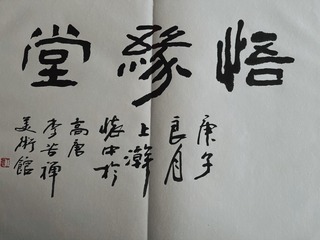 悟緣堂
庚子
良月
上澣
懷中於
高唐
李苦禪
美術館